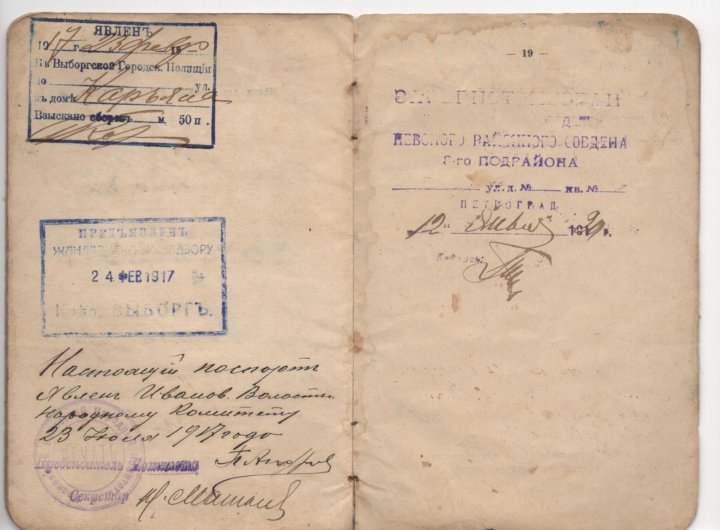 ЯВЛЕНЪ
1917 г. 23 февр
въ Выборгской Городск. Полиціи
по ул.
въ домѣ Карьяла
Взыскано сборовъ м. 50 п.
ПРЕДЪЯВЛЕНЪ
24 ФЕВ 1917
ВЫБОРГЪ.
Настоящій паспортъ
Явленъ Иванов. Волостн.
Народному Комитету
23 Июля 1917 года
Председатель Комитета
Секретарь
— 19 —
НЕВСКОГО РАЙОННОГО СОВДЕПА
8-го ПОДРАЙОНА
ул. д. № кв. №
ПЕТРОГРАД
"12" Января 1920 г.